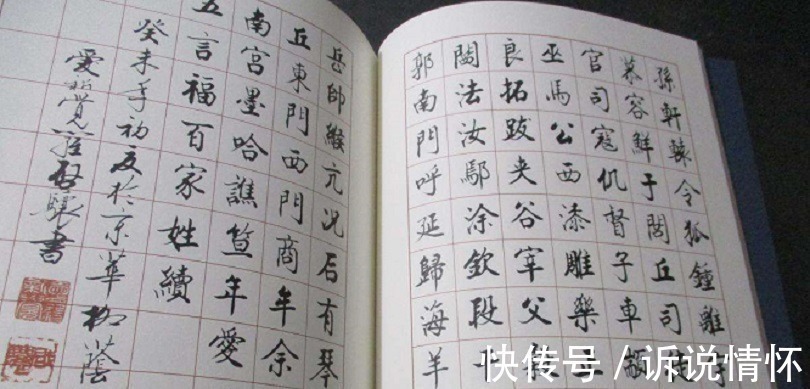 孫軒轅令狐鍾離
慕容鮮于閭丘司
官司寇仉督子車
巫馬公西漆雕樂
良拓跋夾谷宰父
法汝鄢涂欽段
郭南門呼延歸海羊
岳帥緱亢况后有琴
丘東門西門商牟佘
南宮墨哈譙笪年愛
五言福百家姓續
癸未年初夏於京華柳蔭
愛新覺羅啟驤書
快传号 / 诉说情怀